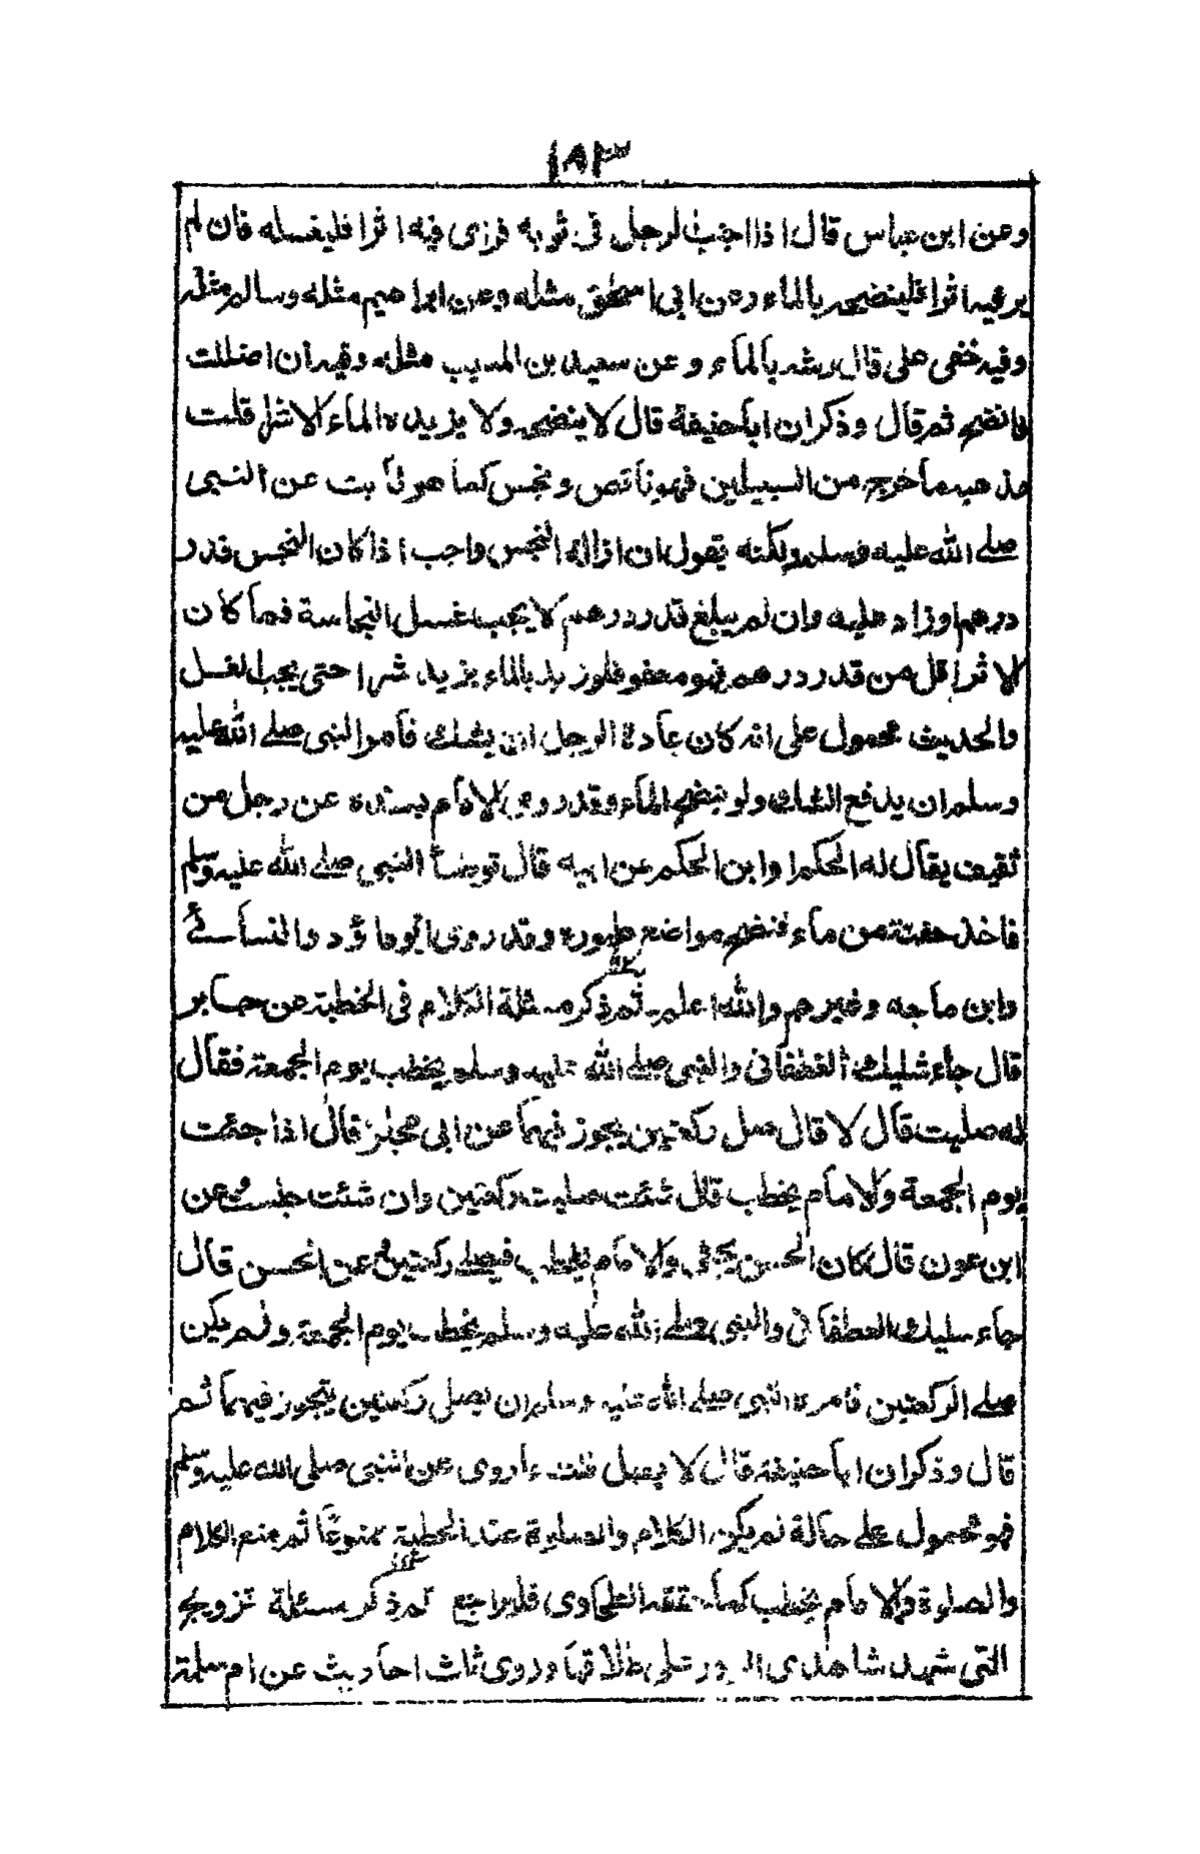 ١٨٣
وعن ابن عباس قال اذا اجنب الرجل فى ثوبه فرأى فيه اثرا فليغسله فان لم
ير فيه اثرا فلينضحه بالماء وعن ابى اسحق مثله وعن ابراهيم مثله وسالم مثله
وفيه خفى على قال رشه بالماء وعن سعيد بن المسيب مثله وفيه ان اضللت
فانضحه ثم قال وذكر ان ابا حنيفة قال لا ينضحه ولا يزيده الماء الا شرا قلت
مذهبه ما خرج من السبيلين فهو ناقص ونجس كما هو ثابت عن النبى
صلے الله عليه وسلم ولكنه يقول ان ازالة النجس واجب اذا كان النجس قدر
درهم او زاد عليه وان لم يبلغ قدر درهم لا يجب غسل النجاسة فما كان
الاثر اقل من قدر درهم فهو معفو فلو زيد بالماء يزيد شرا حتى يجب الغسل
والحديث محمول على انه كان عادة الرجل ان يشك فامر النبى صلے الله عليه
وسلم ان يدفع الشك ولو بنضح الماء وقد روى الامام بسنده عن رجل من
ثقيف يقال له الحكم او ابن الحكم عن ابيه قال توضأ النبى صلے الله عليه وسلم
فاخذ حفنة من ماء فنضح مواضع طهوره وقد روى ابو داؤد والنسائے
وابن ماجه وغيرهم والله اعلم ثم ذكر مسئلة الكلام فى الخطبة عن جابر
قال جاء سليك الغطفانى والنبى صلے الله عليه وسلم يخطب يوم الجمعة فقال
له صليت قال لا قال صل ركعتين يجوز فيهما عن ابى مجلز قال اذا جئت
يوم الجمعة والامام يخطب قال شئت صليت ركعتين وان شئت جلست عن
ابن عون قال كان الحسن يجئ والامام يخطب فيصلے ركعتين عن الحسن قال
جاء سليك الغطفانى والنبى صلے الله عليه وسلم يخطب يوم الجمعة ولم يكن
صلے الركعتين فامره النبى صلے الله عليه وسلم ان يصلى ركعتين يتجوز فيهما ثم
قال وذكر ان ابا حنيفة قال لا يصل قلت ما روى عن النبى صلى الله عليه وسلم
فهو محمول على حالة لم يكن الكلام والصلوة عند الخطبة ممنوعًا ثم منع الكلام
والصلوة والامام يخطب كما حققه الطحاوى فليراجع ثم ذكر مسئلة تزويج
التى شهد شاهدى الزور على طلاقها وروى ثلث احاديث عن ام سلمة